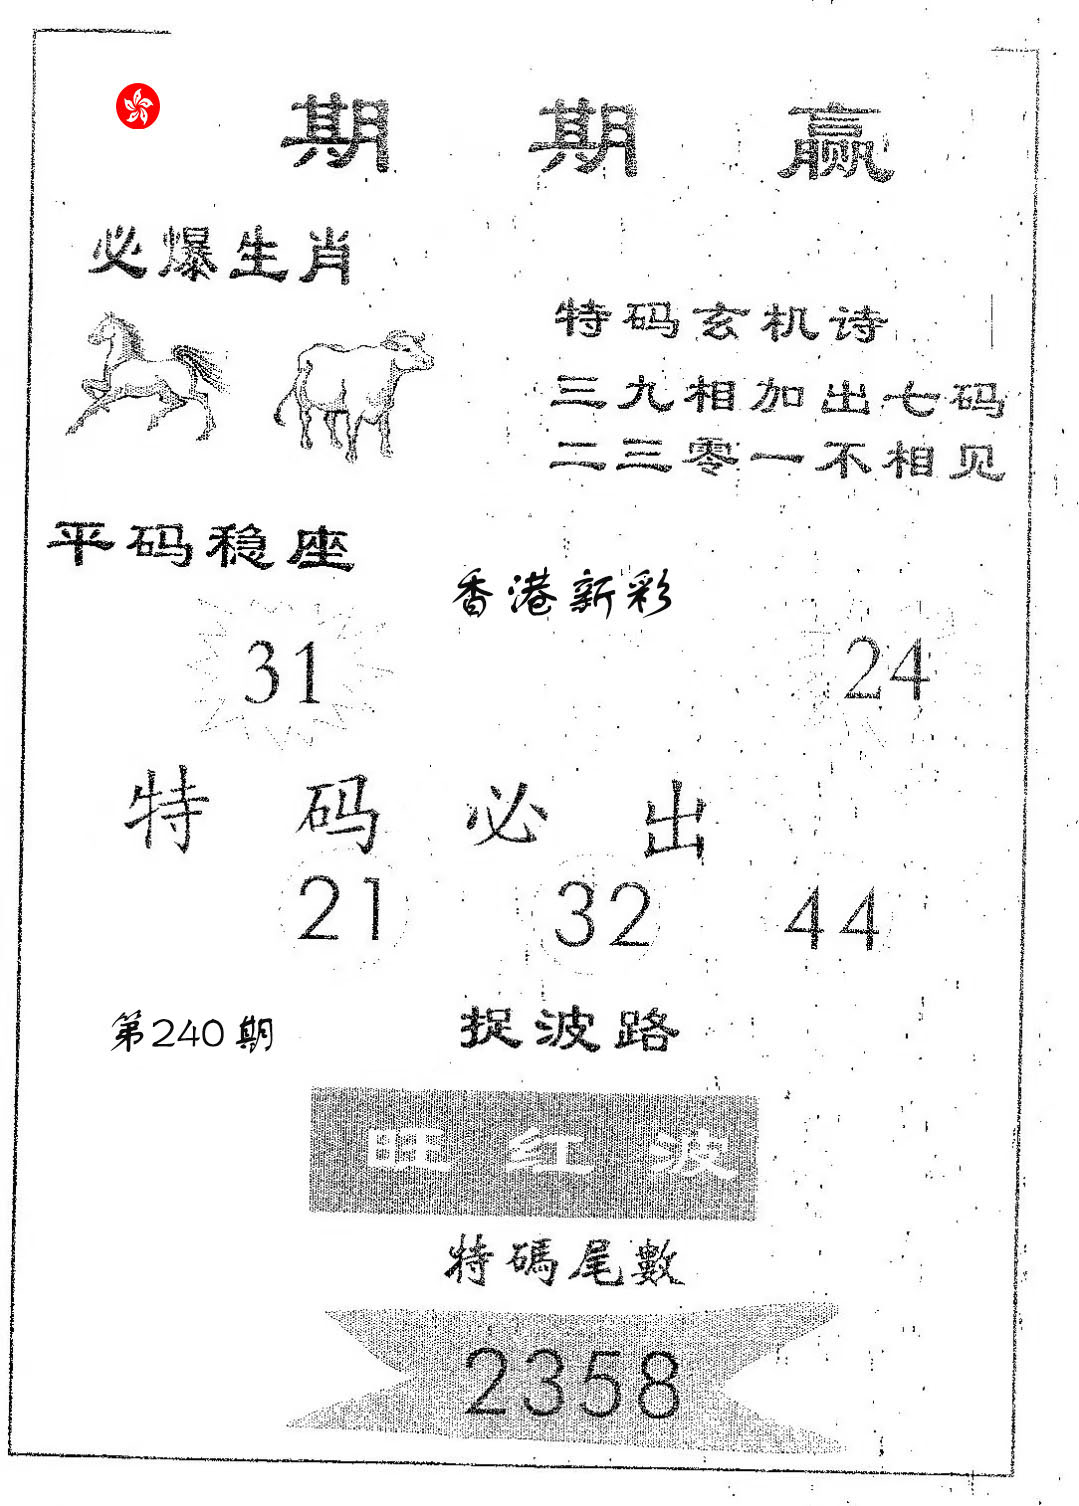 期期赢
必爆生肖
特码玄机诗
三九相加出七码
二三零一不相见
平码稳座
香港新彩
31
24
特码必出
21 32 44
第240期
捉波路
旺红波
特碼尾數
2358